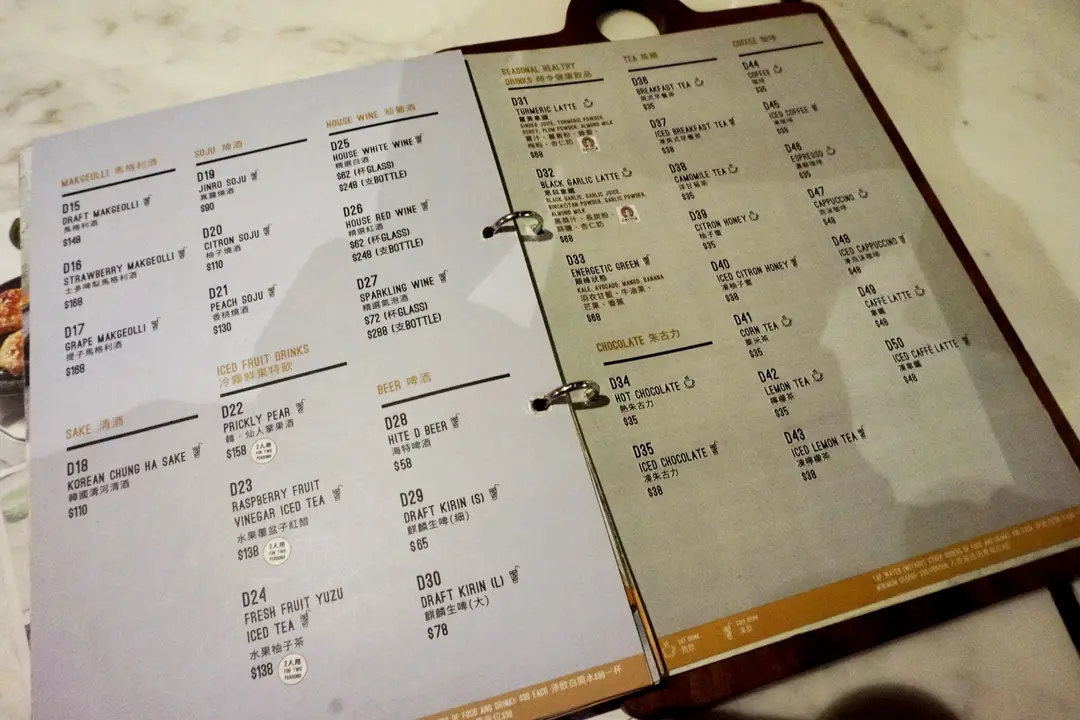 MAKGEOLLI 馬格利酒
D15
DRAFT MAKGEOLLI
馬格利酒
$148
D16
STRAWBERRY MAKGEOLLI
士多啤梨馬格利酒
$168
D17
GRAPE MAKGEOLLI
提子馬格利酒
$168
SAKE 清酒
D18
KOREAN CHUNG HA SAKE
韓國清河清酒
$110
SOJU 燒酒
D19
JINRO SOJU
真露燒酒
$90
D20
CITRON SOJU
柚子燒酒
$110
D21
PEACH SOJU
香桃燒酒
$130
ICED FRUIT DRINKS
冷霧鮮果特飲
D22
PRICKLY PEAR
韓·仙人掌果酒
$158 2人用 FOR TWO PERSONS
D23
RASPBERRY FRUIT
VINEGAR ICED TEA
水果覆盆子紅醋
$138 2人用 FOR TWO PERSONS
D24
FRESH FRUIT YUZU
ICED TEA
水果柚子茶
$138 2人用 FOR TWO PERSONS
HOUSE WINE 葡萄酒
D25
HOUSE WHITE WINE
精選白酒
$62 (杯GLASS)
$248 (支BOTTLE)
D26
HOUSE RED WINE
精選紅酒
$62 (杯GLASS)
$248 (支BOTTLE)
D27
SPARKLING WINE
精選氣泡酒
$72 (杯GLASS)
$288 (支BOTTLE)
BEER 啤酒
D28
HITE D BEER
海特啤酒
$58
D29
DRAFT KIRIN (S)
麒麟生啤(細)
$65
D30
DRAFT KIRIN (L)
麒麟生啤(大)
$78
OF FOOD AND DRINK) $90 EACH 淨飲白開水$90一杯
SEASONAL HEALTHY
DRINKS 時令健康飲品
D31
TURMERIC LATTE
薑黃拿鐵
GINGER JUICE, TURMERIC POWDER,
HONEY, PLUM POWDER, ALMOND MILK
薑汁、薑黃粉、蜂蜜、
梅粉、杏仁奶
$68
D32
BLACK GARLIC LATTE
黑蒜拿鐵
BLACK GARLIC, GARLIC JUICE,
BINCHOTAN POWDER, GARLIC POWDER,
ALMOND MILK
黑蒜汁、長炭粉、
蒜鹽、杏仁奶
$68
D33
ENERGETIC GREEN
巔峰狀態
KALE, AVOCADO, MANGO, BANANA
羽衣甘藍、牛油果、
芒果、香蕉
$68
CHOCOLATE 朱古力
D34
HOT CHOCOLATE
熱朱古力
$35
D35
ICED CHOCOLATE
凍朱古力
$38
TEA 茶類
D36
BREAKFAST TEA
英式早餐茶
$35
D37
ICED BREAKFAST TEA
凍英式早餐茶
$38
D38
CAMOMILE TEA
洋甘菊茶
$35
D39
CITRON HONEY
柚子蜜
$35
D40
ICED CITRON HONEY
凍柚子蜜
$38
D41
CORN TEA
粟米茶
$35
D42
LEMON TEA
檸檬茶
$35
D43
ICED LEMON TEA
凍檸檬茶
$38
COFFEE 咖啡
D44
COFFEE
咖啡
$35
D45
ICED COFFEE
凍咖啡
$38
D46
ESPRESSO
濃縮咖啡
$35
D47
CAPPUCCINO
泡沫咖啡
$48
D48
ICED CAPPUCCINO
凍泡沫咖啡
$48
D49
CAFFÈ LATTE
拿鐵
$48
D50
ICED CAFFÈ LATTE
凍拿鐵
$48
HOT DRINK
熱飲
COLD DRINK
凍飲
TAP WATER (WITHOUT OTHER ORDERS OF FOOD AND DRINK)
MINIMUM CHARGE